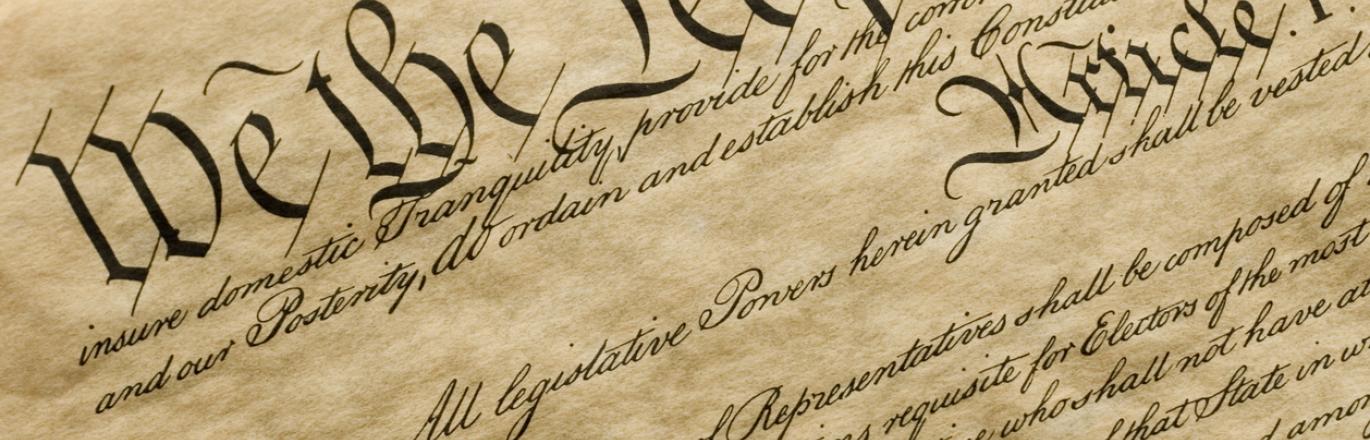 We the
insure domestic Tranquility, provide for the
and our Posterity, do ordain and establish this
Article. I.
All legislative Powers herein granted shall be vested
Representatives shall be composed of
requisite for Electors of the most
who shall not have
that State in